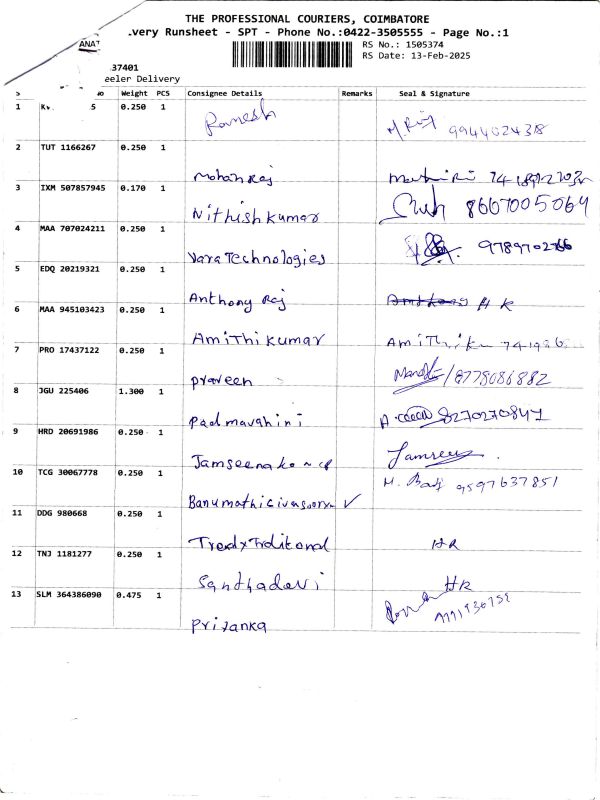 THE PROFESSIONAL COURIERS, COIMBATORE
very Runsheet - SPT - Phone No.:0422-3505555 - Page No.:1
ANAT
RS No.: 1505374
RS Date: 13-Feb-2025
37401
eeler Delivery
Weight PCS Consignee Details Remarks Seal & Signature
1 0.250 1 Ramesh 9944024318
2 TUT 1166267 0.250 1 Mohanraj
3 IXM 507857945 0.170 1 Nithish kumar 8667005064
4 MAA 707024211 0.250 1 Vara Technologies 9789702766
5 EDQ 20219321 0.250 1 Anthony Raj H R
6 MAA 945103423 0.250 1 Amithi kumar
7 PRO 17437122 0.250 1 praveen 8778086882
8 JGU 225406 1.300 1 Padmavahini 8270270847
9 HRD 20691986 0.250 1
10 TCG 30067778 0.250 1 ✓ 9597637851
11 DDG 980668 0.250 1 HR
12 TNJ 1181277 0.250 1 Santhadevi HR
13 SLM 364386090 0.475 1 Priyanka